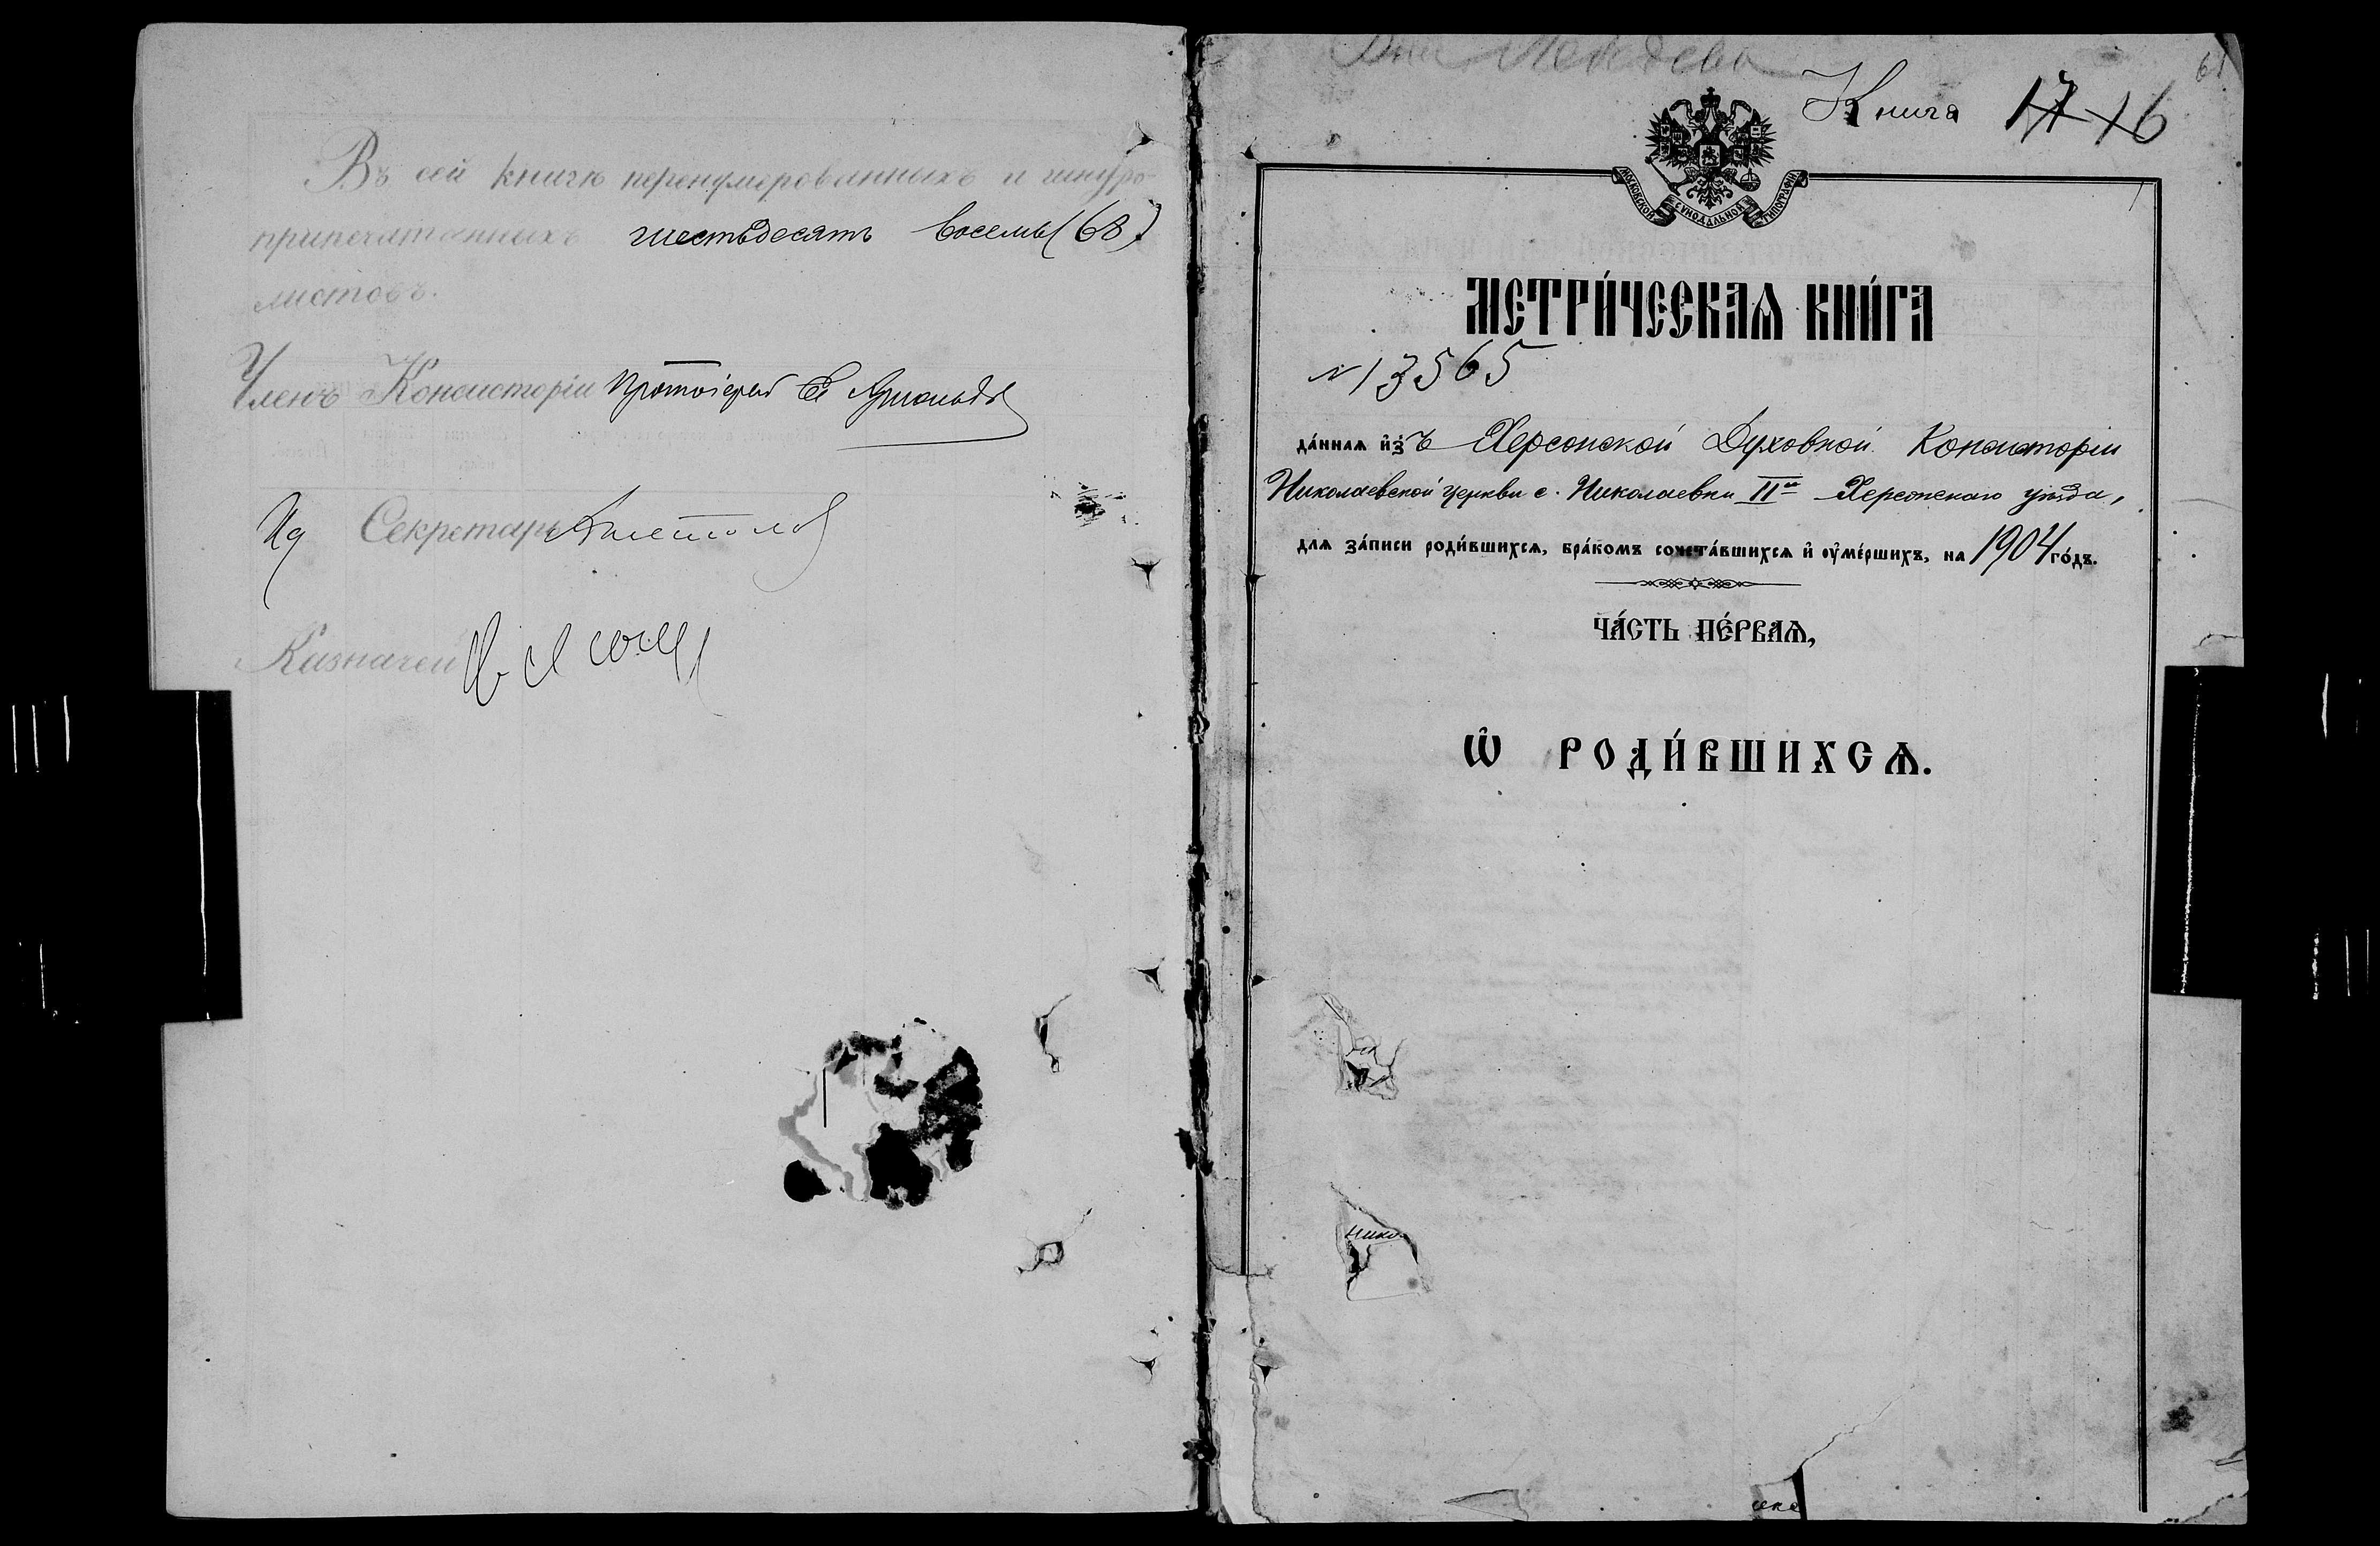 Въ сей книгѣ перенумерованныхъ и шнуро-
припечатанныхъ шестьдесятъ восемь (68)
листовъ.
Членъ Консисторіи Протоіерей
Ид Секретарь
Казначей
Книга 17 16
61
МОСКОВСКОЙ СѴНОДАЛЬНОЙ ТИПОГРАФІИ
МЕТРИ́ЧЕСКАѦ КНИ́ГА
№ 13565
да́ннаѧ и҆з̾ъ Херсонской Духовной Консисторіи
Николаевской церкви с. Николаевки IIй Херсонскаго уѣзда,
длѧ за́писи роди́вшихсѧ, бра́комъ сочета́вшихсѧ и҆ оу҆ме́ршихъ, на 1904 го́дъ.
ЧА́СТЬ ПЕ́РВАѦ,
Ѽ РОДИ́ВШИХСѦ.
нико